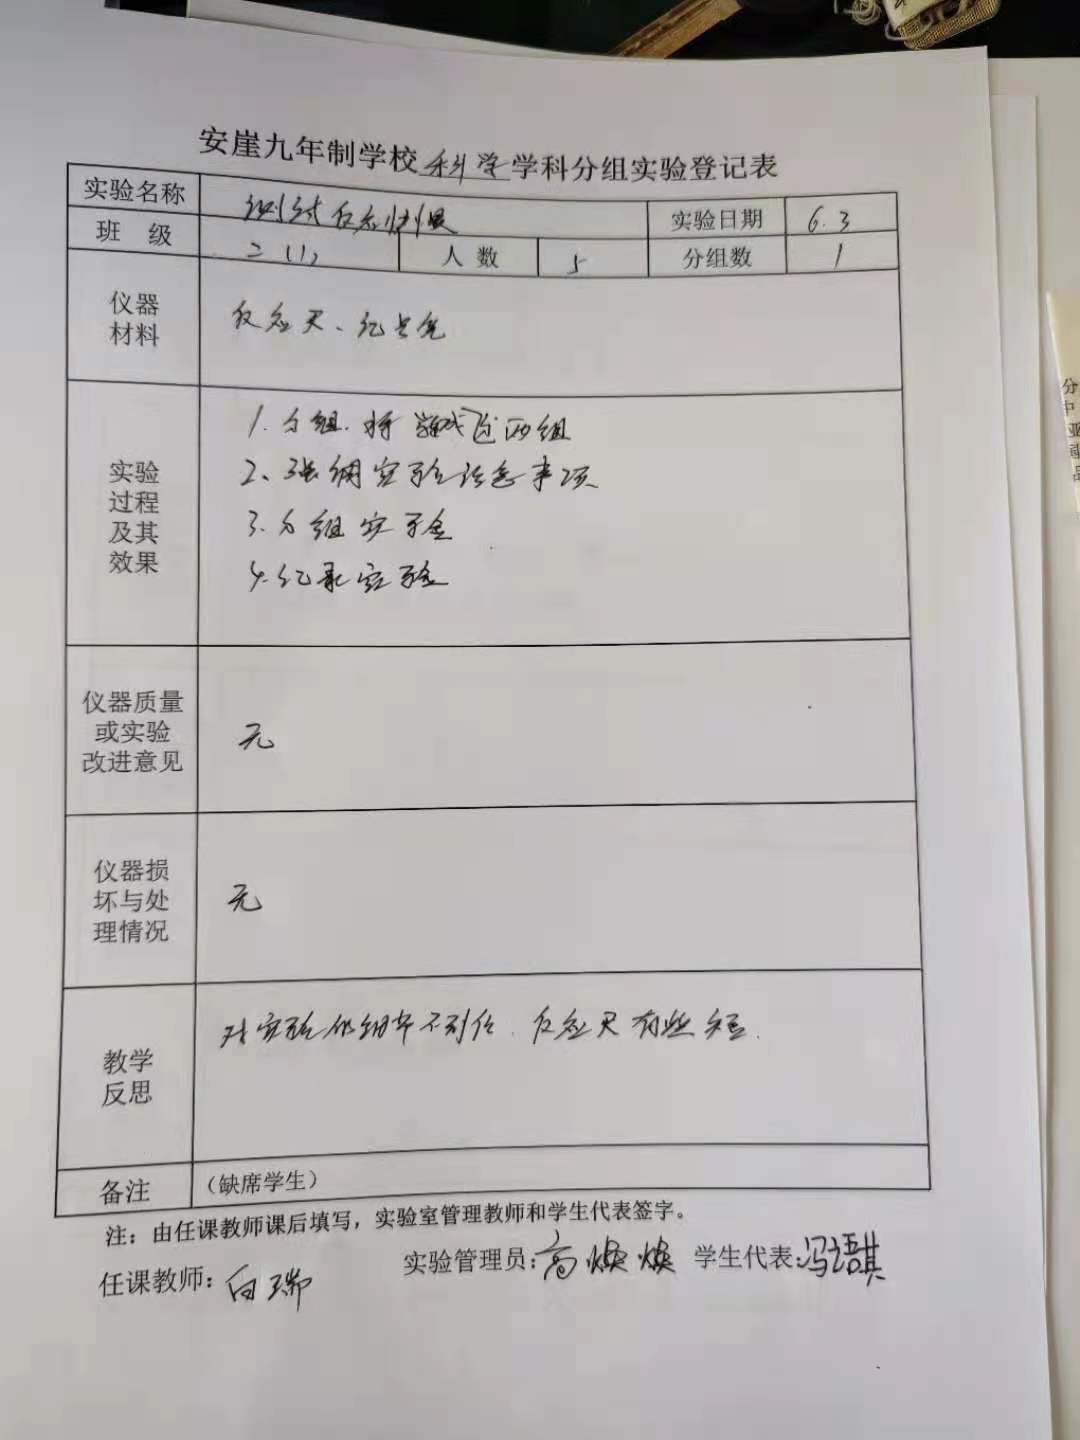 安崖九年制学校科学学科分组实验登记表
实验名称 测试反应快慢 实验日期 6.3
班 级 二(1) 人数 5 分组数 1
仪器
材料
反应尺、记录笔
实验
过程
及其
效果
1.分组.将 分两组
2、强调实验注意事项
3.分组实验
4.记录实验
仪器质量
或实验
改进意见
无
仪器损
坏与处
理情况
无
教学
反思
对实验的细节不到位.反应尺有些短.
备注 (缺席学生)
注：由任课教师课后填写，实验室管理教师和学生代表签字。
任课教师：白瑞 实验管理员：高焕焕 学生代表：冯语淇